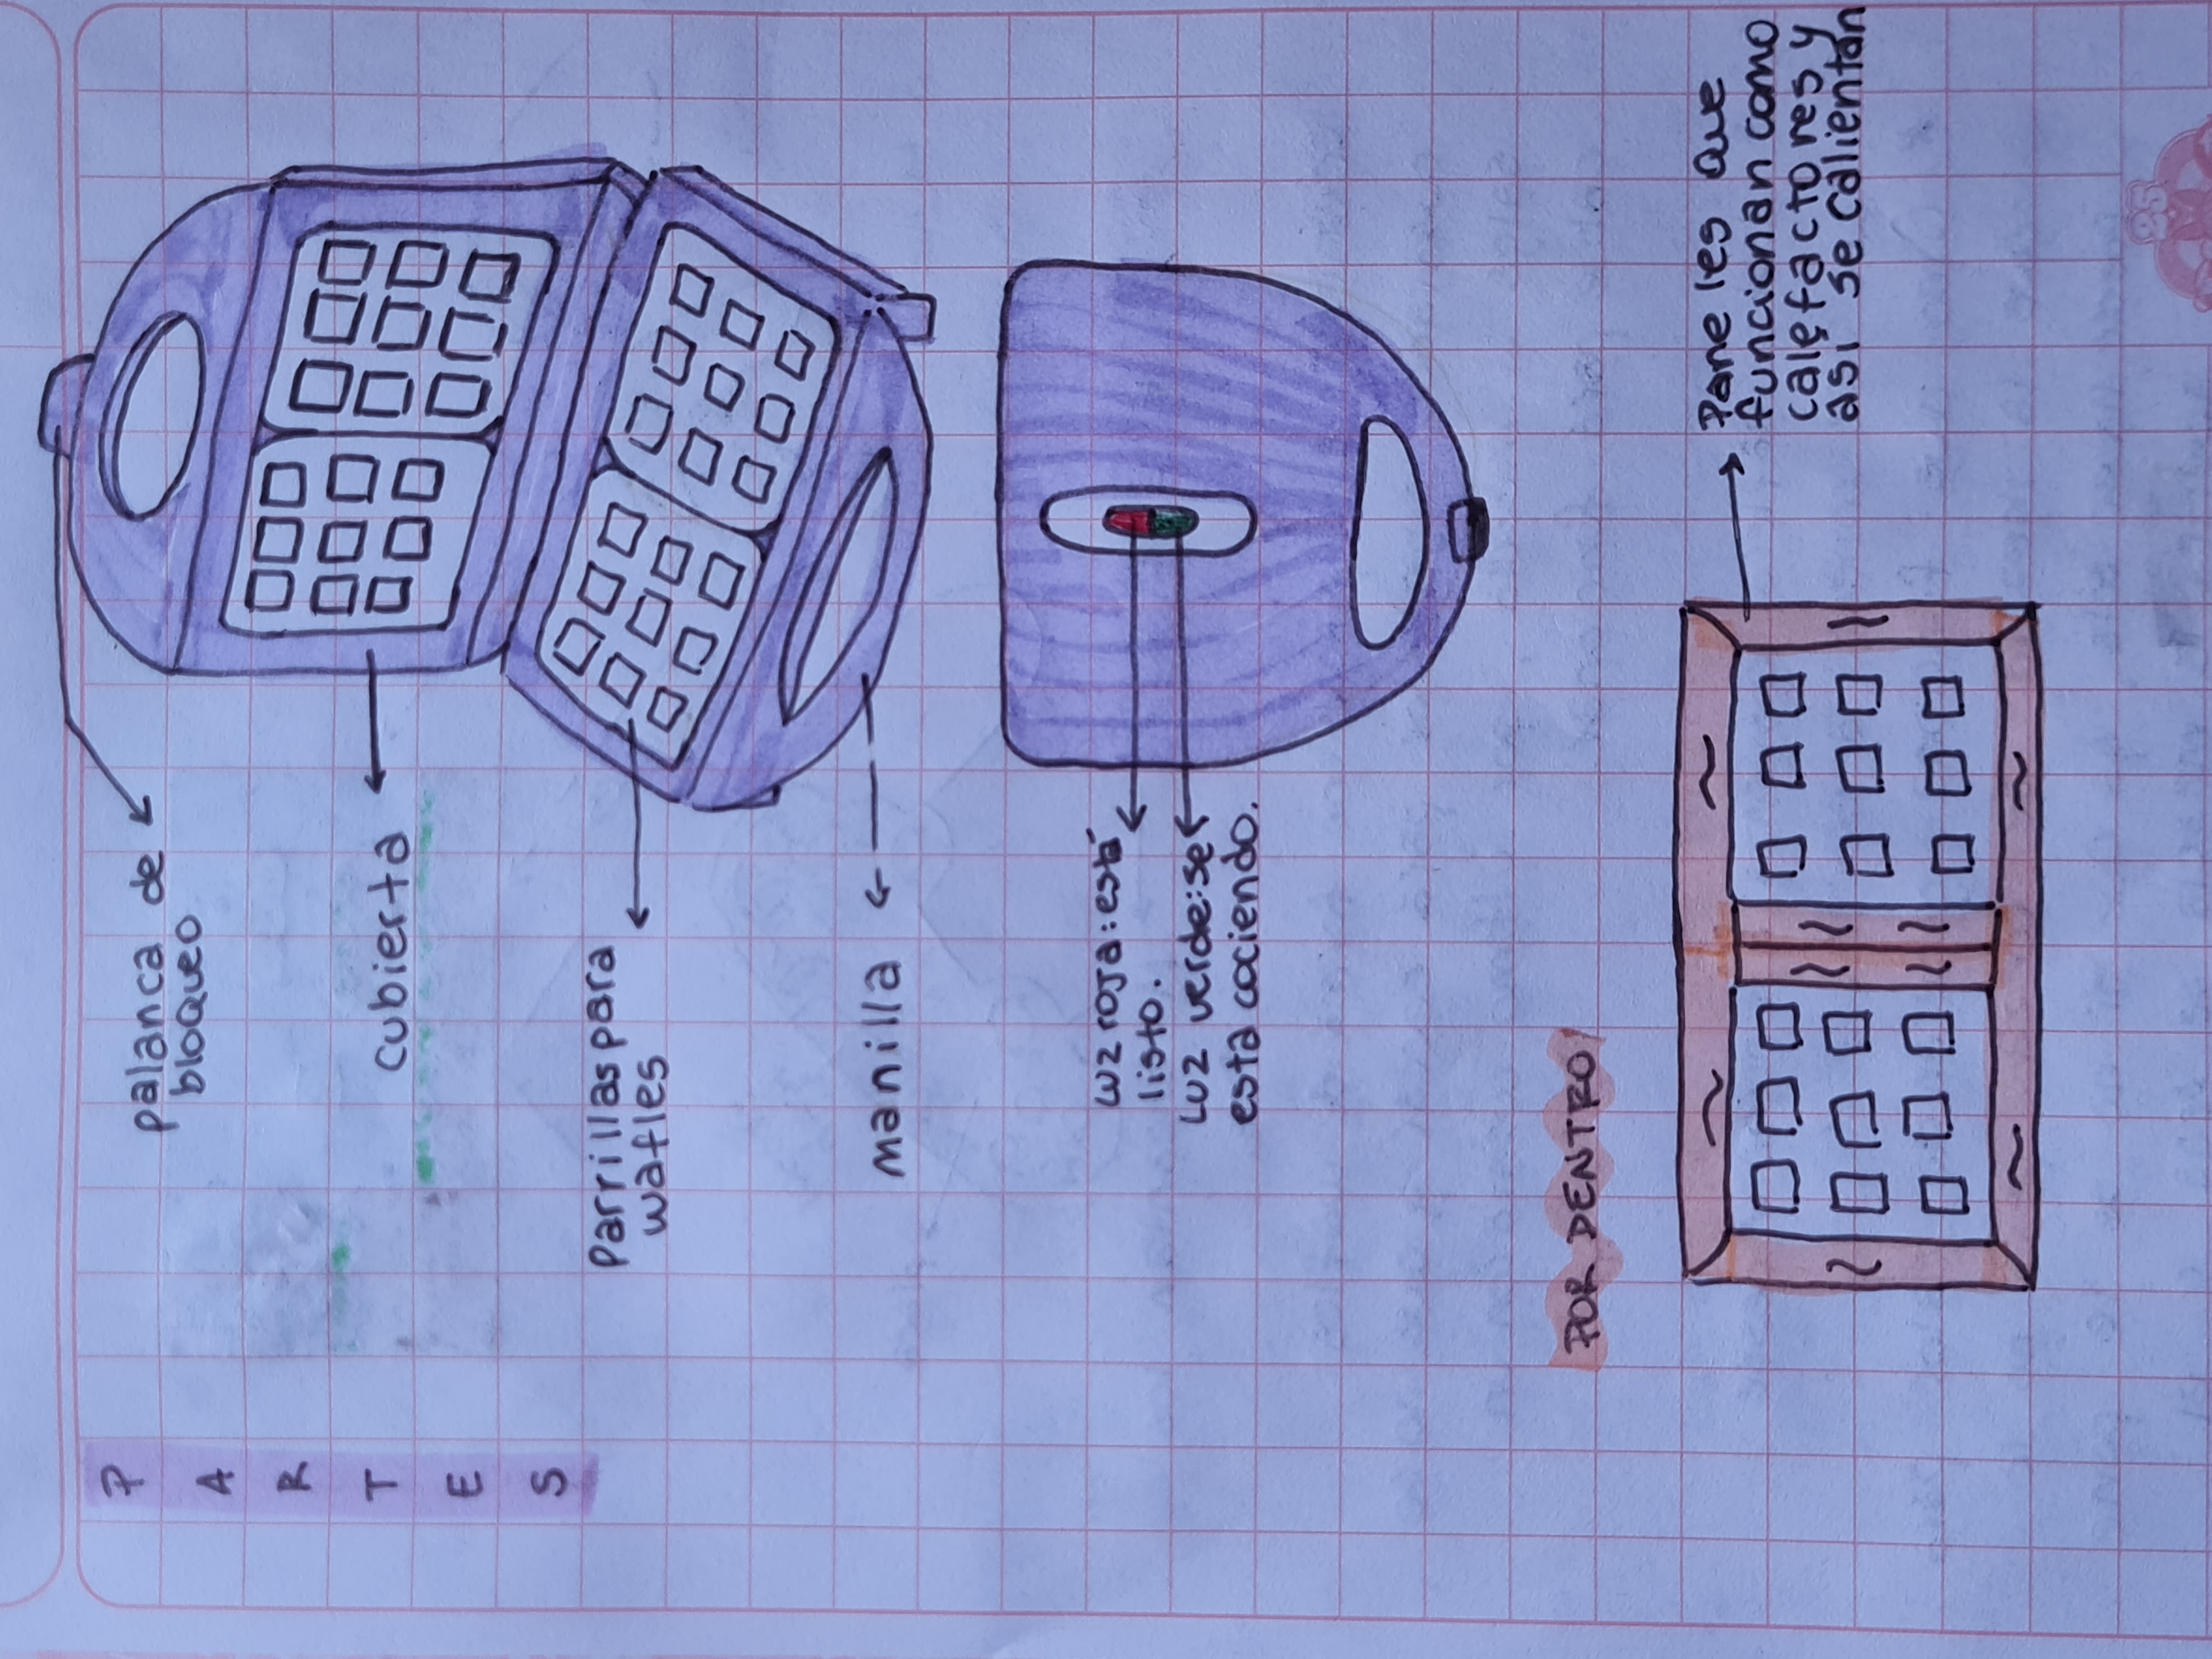 PARTES
palanca de
bloqueo
cubierta
Parrillas para
wafles
manilla
Luz roja: está
listo.
Luz verde: se
esta cociendo.
POR DENTRO
Paneles que
funcionan como
calefactores y
asi se calientan
25